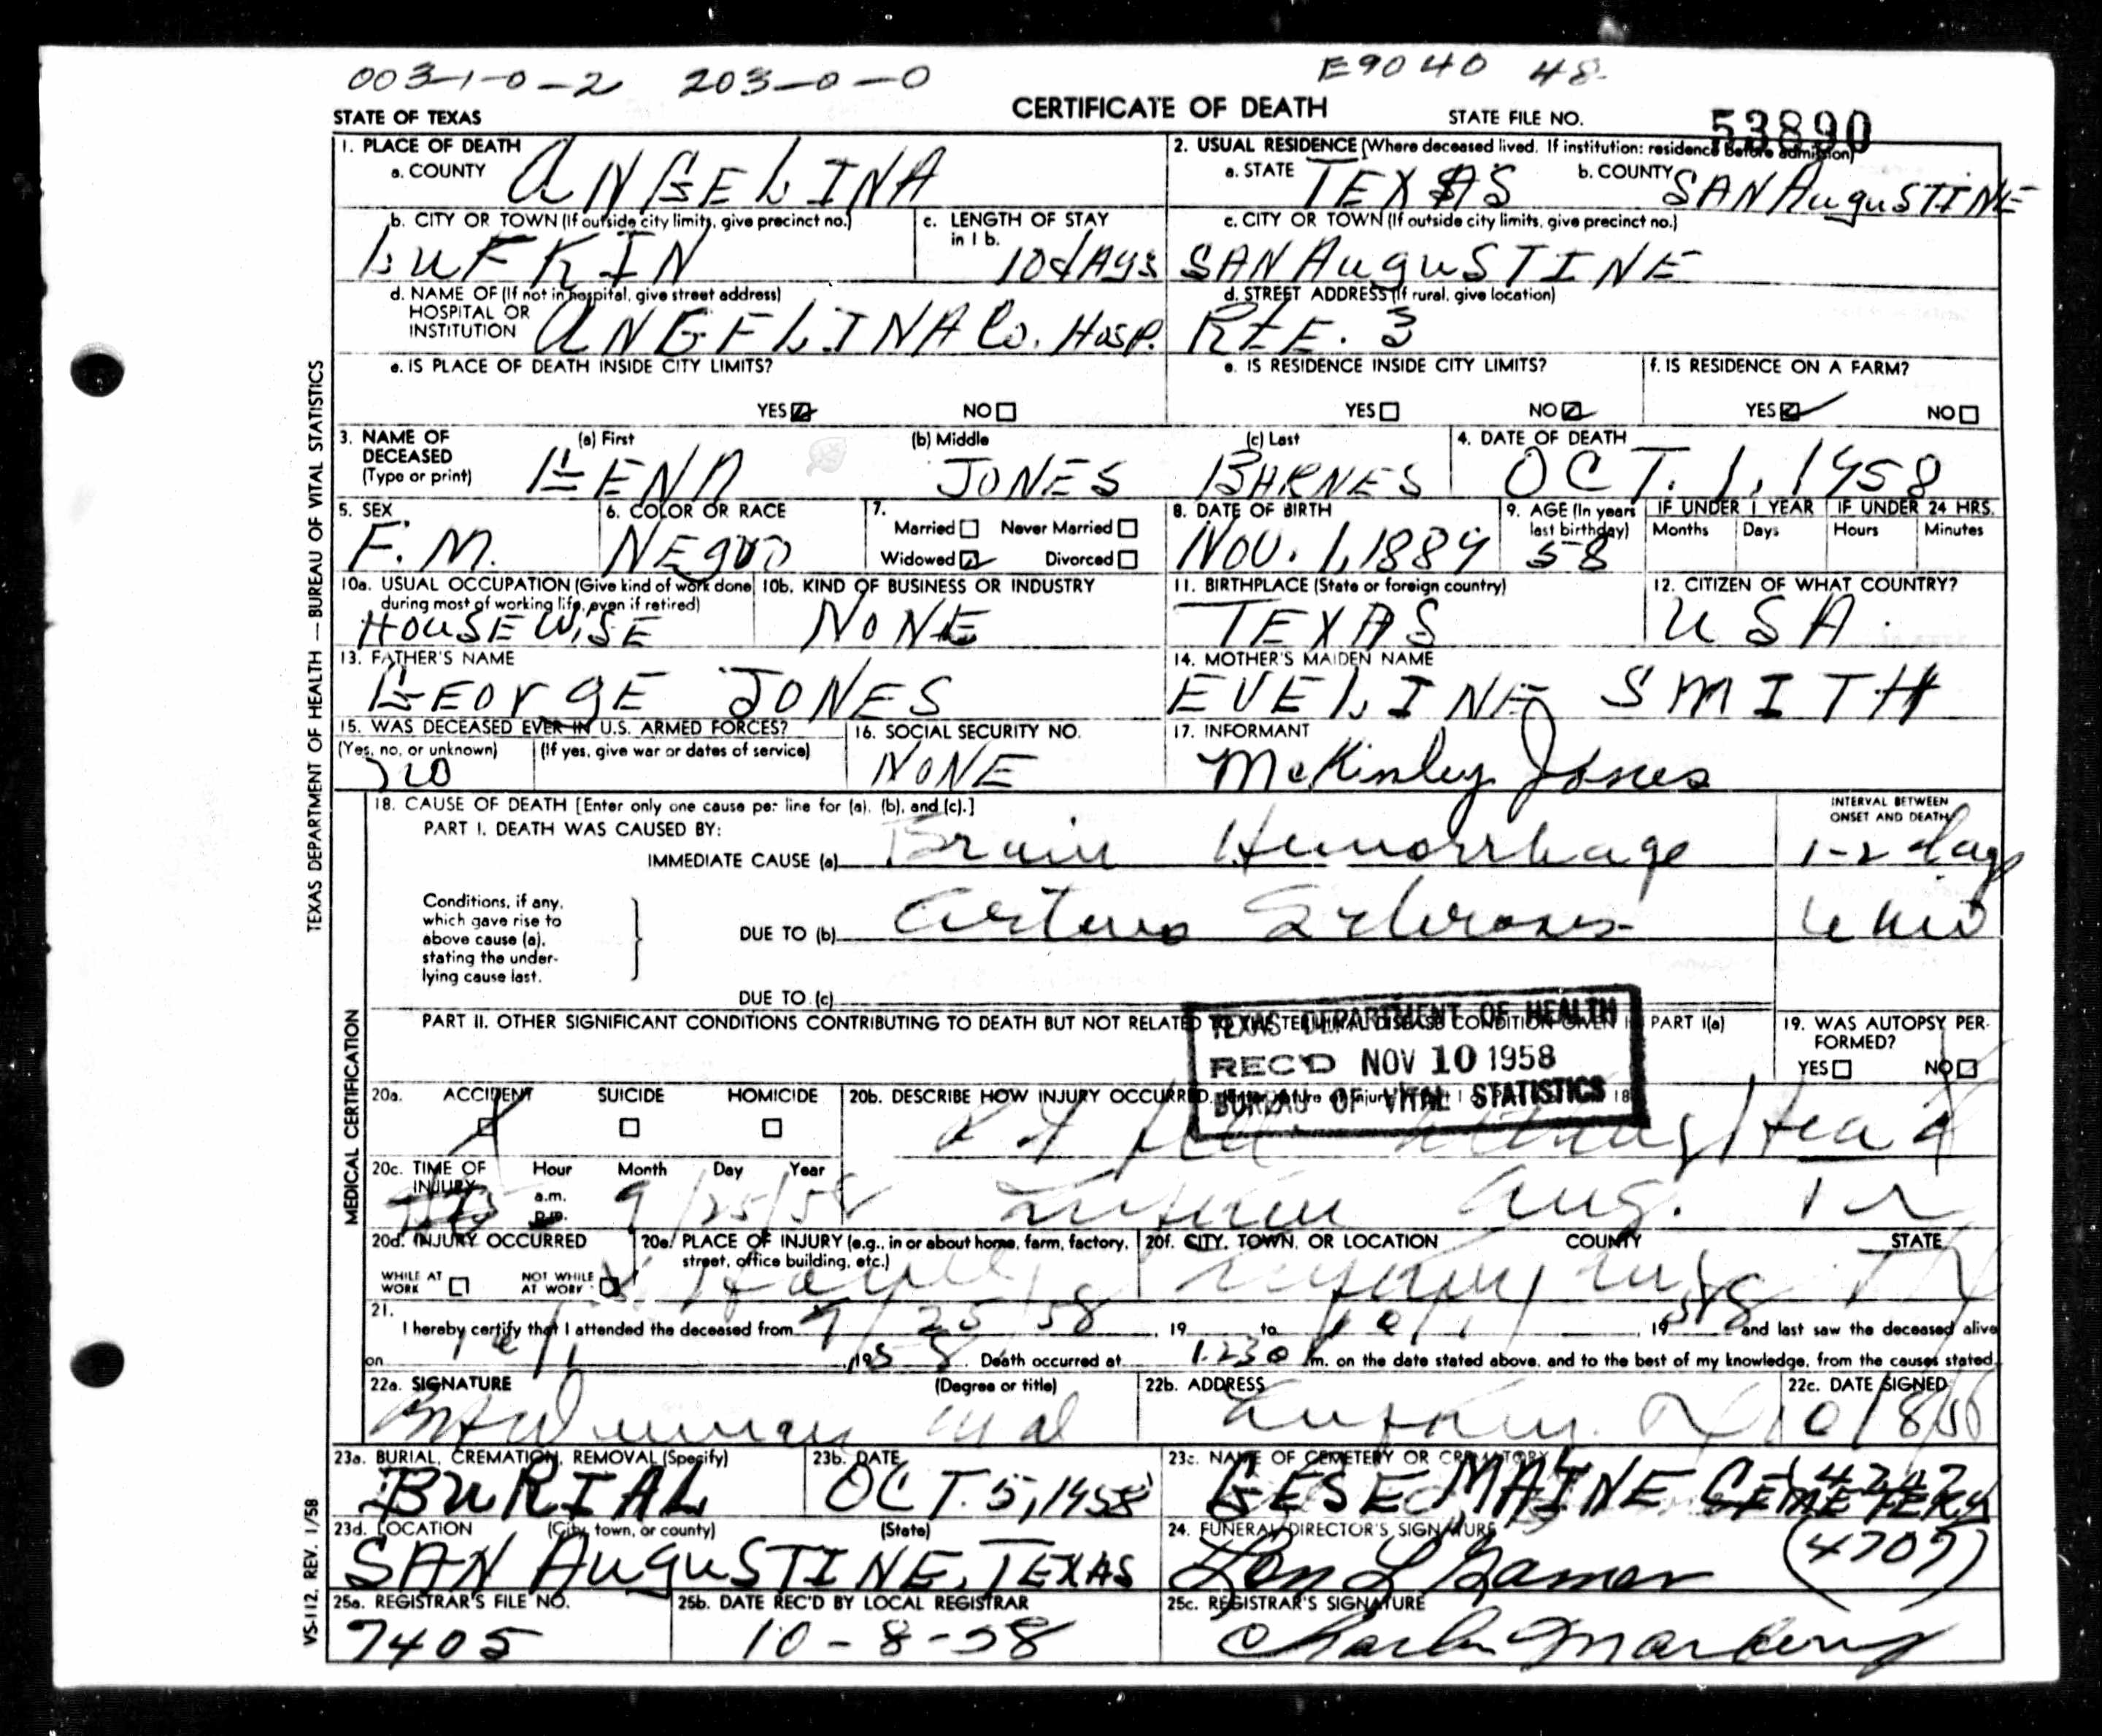 003-1-0-2 203-0-0 E9040 48
STATE OF TEXAS CERTIFICATE OF DEATH STATE FILE NO. 53890
1. PLACE OF DEATH
a. COUNTY ANGELINA
2. USUAL RESIDENCE (Where deceased lived. If institution: residence before admission)
a. STATE TEXAS b. COUNTY SAN AuguSTINE
b. CITY OR TOWN (If outside city limits, give precinct no.) LUFKIN
c. LENGTH OF STAY in 1 b. 10 dAys
c. CITY OR TOWN (If outside city limits, give precinct no.) SAN AuguSTINE
d. NAME OF (If not in hospital, give street address) HOSPITAL OR INSTITUTION ANGELINA Co. Hosp.
d. STREET ADDRESS (If rural, give location) RtE. 3
e. IS PLACE OF DEATH INSIDE CITY LIMITS? YES NO
e. IS RESIDENCE INSIDE CITY LIMITS? YES NO
f. IS RESIDENCE ON A FARM? YES NO
3. NAME OF DECEASED (Type or print) (a) First (b) Middle JONES (c) Last BARNES
4. DATE OF DEATH OCT. 1, 1958
5. SEX F.M.
6. COLOR OR RACE NEgro
7. Married Never Married
Widowed Divorced
8. DATE OF BIRTH NOV. 1, 1889
9. AGE (In years last birthday) 58
IF UNDER 1 YEAR Months Days
IF UNDER 24 HRS. Hours Minutes
10a. USUAL OCCUPATION (Give kind of work done during most of working life, even if retired) HOUSE WISE
10b. KIND OF BUSINESS OR INDUSTRY NONE
11. BIRTHPLACE (State or foreign country) TEXAS
12. CITIZEN OF WHAT COUNTRY? USA.
13. FATHER'S NAME GEOrgE JONES
14. MOTHER'S MAIDEN NAME EVELINE SMITH
15. WAS DECEASED EVER IN U.S. ARMED FORCES?
(Yes, no, or unknown) no (If yes, give war or dates of service)
16. SOCIAL SECURITY NO. NONE
17. INFORMANT McKinley Jones
18. CAUSE OF DEATH [Enter only one cause per line for (a), (b), and (c).]
INTERVAL BETWEEN ONSET AND DEATH
PART I. DEATH WAS CAUSED BY:
IMMEDIATE CAUSE (a) Brain Hemorrhage 1-2 days
Conditions, if any, which gave rise to above cause (a), stating the underlying cause last.
DUE TO (b) Arterio Sclerosis
DUE TO (c)
PART II. OTHER SIGNIFICANT CONDITIONS CONTRIBUTING TO DEATH BUT NOT RELATED TO THE TERMINAL DISEASE CONDITION GIVEN IN PART I(a)
19. WAS AUTOPSY PERFORMED? YES NO
TEXAS DEPARTMENT OF HEALTH
REC'D NOV 10 1958
BUREAU OF VITAL STATISTICS
20a. ACCIDENT SUICIDE HOMICIDE
20b. DESCRIBE HOW INJURY OCCURRED. Pt fell Head
20c. TIME OF INJURY Hour a.m. p.m. Month Day Year 9/25/58
20d. INJURY OCCURRED WHILE AT WORK NOT WHILE AT WORK
20e. PLACE OF INJURY (e.g., in or about home, farm, factory, street, office building, etc.)
20f. CITY, TOWN, OR LOCATION COUNTY STATE
21. I hereby certify that I attended the deceased from 9/25 58, 19 to 10/1/, 19 58 and last saw the deceased alive
on 10/1, 19 58. Death occurred at 1230 m. on the date stated above, and to the best of my knowledge, from the causes stated.
22a. SIGNATURE (Degree or title) M d
22b. ADDRESS Lufkin. Tx
22c. DATE SIGNED 10/8/58
23a. BURIAL, CREMATION, REMOVAL (Specify) BURIAL
23b. DATE OCT. 5, 1958
23c. NAME OF CEMETERY OR CREMATORY GESEMAINE CEMETERY
23d. LOCATION (City, town, or county) (State) SAN AuguSTINE, TEXAS
24. FUNERAL DIRECTOR'S SIGNATURE (4707)
25a. REGISTRAR'S FILE NO. 7405
25b. DATE REC'D BY LOCAL REGISTRAR 10-8-58
25c. REGISTRAR'S SIGNATURE
TEXAS DEPARTMENT OF HEALTH — BUREAU OF VITAL STATISTICS
MEDICAL CERTIFICATION
VS-112. REV. 1/58